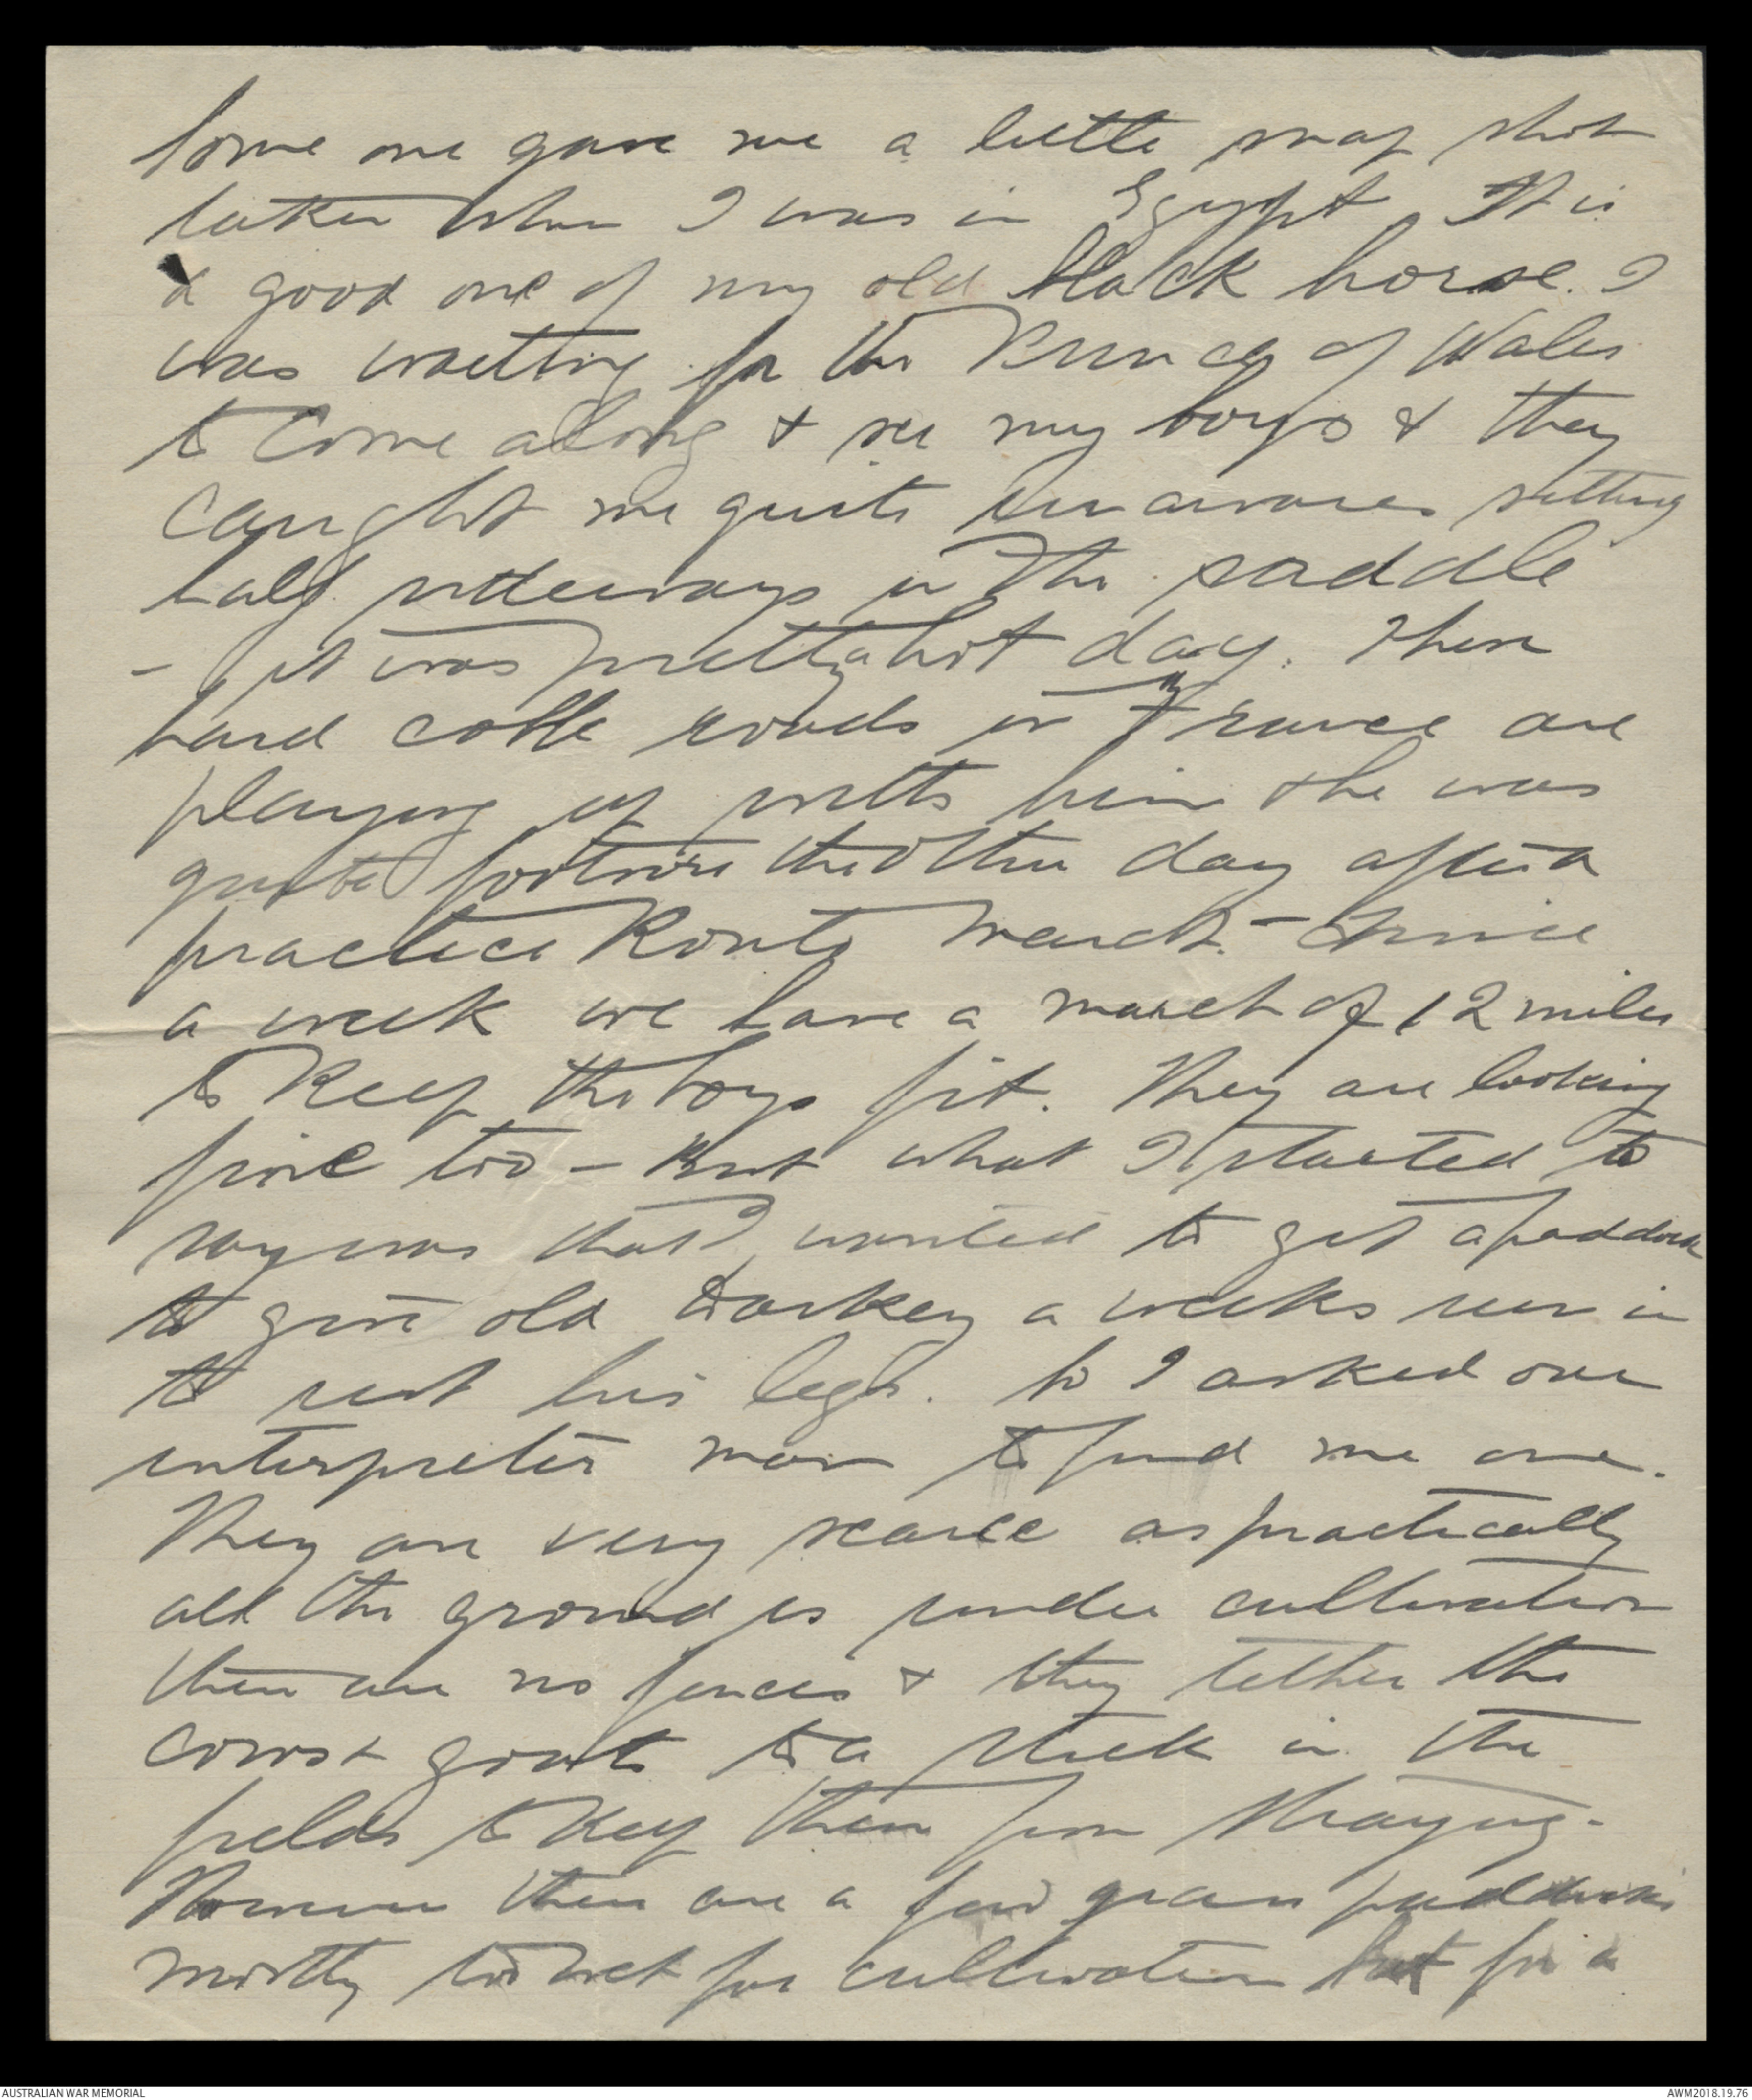 Some one gave me a little snap shot
taken when I was in Egypt. It is
a good one of my old black horse. I
was waiting for the Prince of Wales
to come along & see my boys & they
caught me quite unawares sitting
half sideways in the saddle
- it was pretty a hot day. These
hard cobble roads in France are
playing up with him & he was
quite footsore the other day after a
practice Route March. - Twice
a week we have a march of 12 miles
to keep the boys fit. They are looking
fine too - But what I started to
say was that I wanted to get a paddock
to give old Darkey a weeks run in
to rest his legs. So I asked our
interpreter man to find me one.
They are very scarce as practically
all the ground is under cultivation
there are no fences & they tether the
cows & goats to a stick in the
fields to keep them from straying.
However there are a few grass paddocks
mostly too wet for cultivation but for a
AUSTRALIAN WAR MEMORIAL
AWM2018.19.76